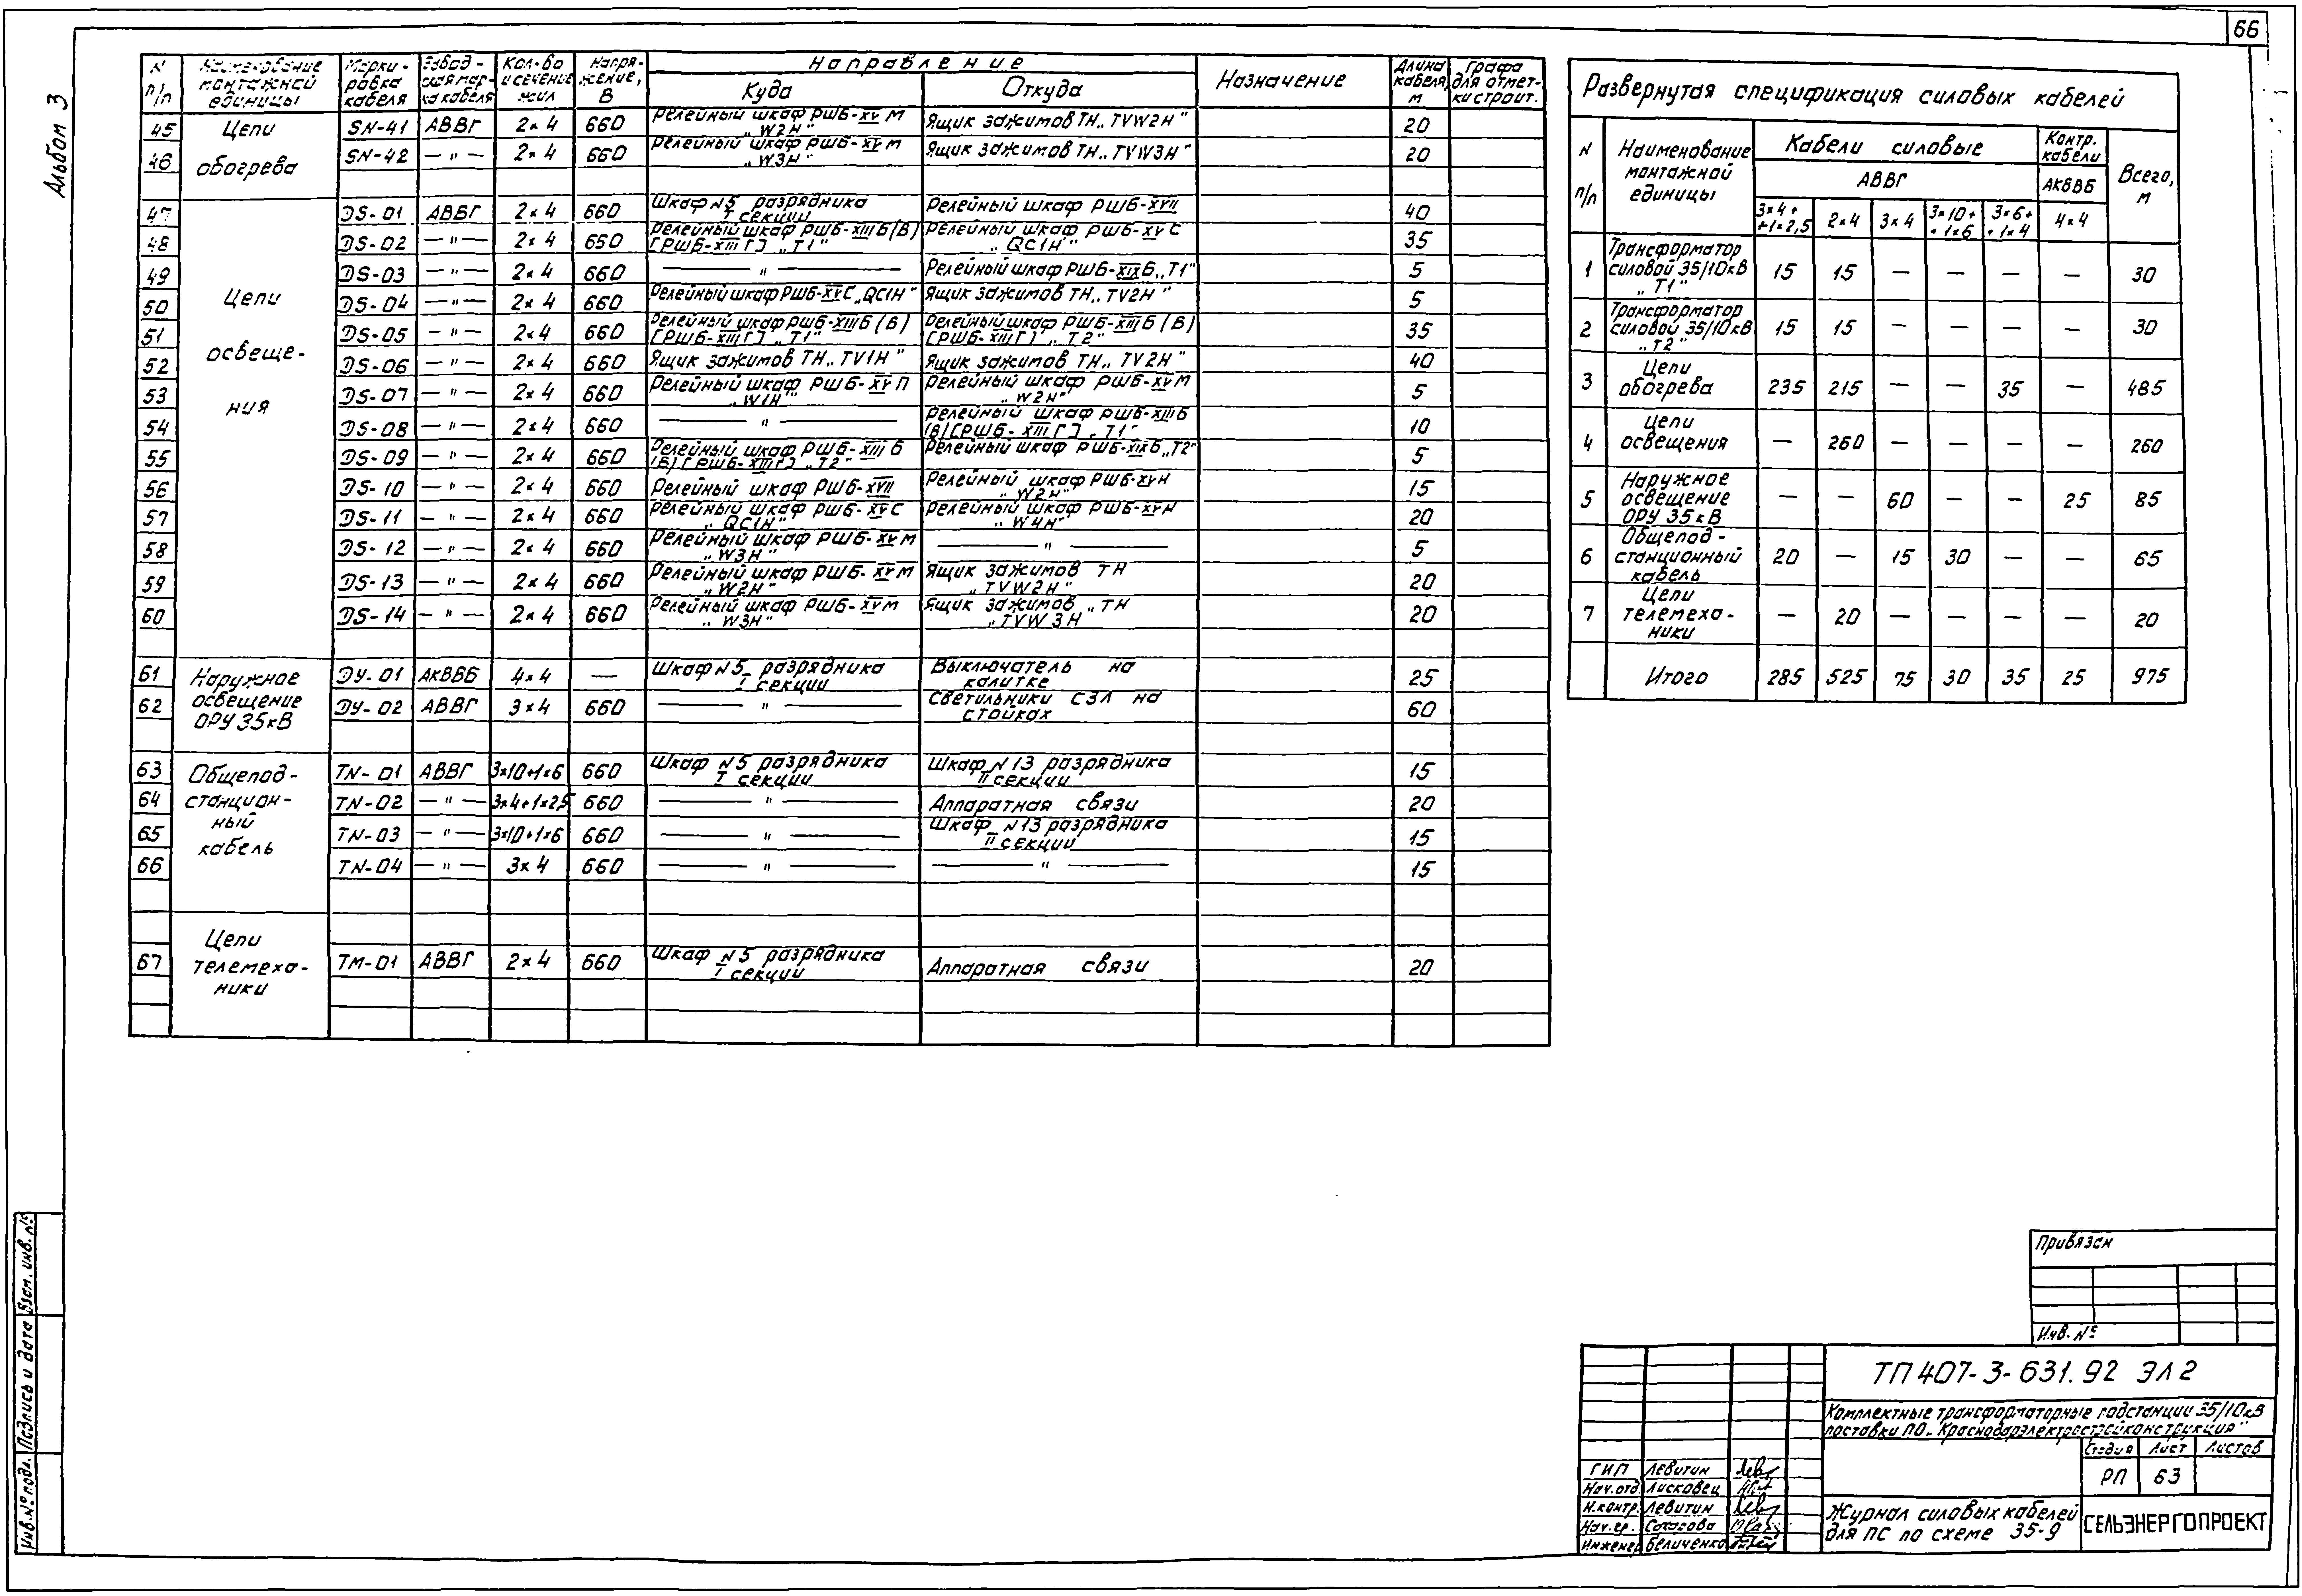 66
Альбом 3
N п/п Наименование монтажной единицы Маркировка кабеля Заводская марка кабеля Кол-во и сечение жил Напряжение, В Направление Назначение Длина кабеля, м Графа для отметки строит.
Куда Откуда
45 Цепи SN-41 АВВГ 2×4 660 Релейный шкаф РШБ-XV М „W2H" Ящик зажимов ТН „TVW2H" 20
46 обогрева SN-42 —"— 2×4 660 Релейный шкаф РШБ-XV М „W3H" Ящик зажимов ТН „TVW3H" 20
47 DS-01 АВВГ 2×4 660 Шкаф N5 разрядника I секции Релейный шкаф РШБ-XVII 40
48 DS-02 —"— 2×4 650 Релейный шкаф РШБ-XIII Б(В) [РШБ-XIII Г] „Т1" Релейный шкаф РШБ-XV С „QC1H" 35
49 DS-03 —"— 2×4 660 —"— Релейный шкаф РШБ-XIX Б „Т1" 5
50 Цепи DS-04 —"— 2×4 660 Релейный шкаф РШБ-XV С „QC1H" Ящик зажимов ТН „TV2H" 5
51 освеще- DS-05 —"— 2×4 660 Релейный шкаф РШБ-XIII Б (В) [РШБ-XIII Г] „Т1" Релейный шкаф РШБ-XIII Б (В) [РШБ-XIII Г] „Т2" 35
52 DS-06 —"— 2×4 660 Ящик зажимов ТН „TV1H" Ящик зажимов ТН „TV2H" 40
53 ния DS-07 —"— 2×4 660 Релейный шкаф РШБ-XV П „W1H" Релейный шкаф РШБ-XV М „W2H" 5
54 DS-08 —"— 2×4 660 —"— Релейный шкаф РШБ-XIII Б (В) [РШБ-XIII Г] „Т1" 10
55 DS-09 —"— 2×4 660 Релейный шкаф РШБ-XIII Б (В) [РШБ-XIII Г] „Т2" Релейный шкаф РШБ-XIX Б „Т2" 5
56 DS-10 —"— 2×4 660 Релейный шкаф РШБ-XVII Релейный шкаф РШБ-XV Н „W2H" 15
57 DS-11 —"— 2×4 660 Релейный шкаф РШБ-XV С „QC1H" Релейный шкаф РШБ-XV Н „W4H" 20
58 DS-12 —"— 2×4 660 Релейный шкаф РШБ-XV М „W3H" —"— 5
59 DS-13 —"— 2×4 660 Релейный шкаф РШБ-XV М „W2H" Ящик зажимов ТН „TVW2H" 20
60 DS-14 —"— 2×4 660 Релейный шкаф РШБ-XV М „W3H" Ящик зажимов „ТН „TVW3H" 20
61 Наружное DУ-01 АКВВБ 4×4 — Шкаф N5 разрядника I секции Выключатель на калитке 25
62 освещение ОРУ 35кВ DУ-02 АВВГ 3×4 660 —"— Светильники СЗЛ на стойках 60
63 Общепод- TN-01 АВВГ 3×10+1×6 660 Шкаф N5 разрядника I секции Шкаф N13 разрядника II секции 15
64 станцион- TN-02 —"— 3×4+1×2,5 660 —"— Аппаратная связи 20
65 ный TN-03 —"— 3×10+1×6 660 —"— Шкаф N13 разрядника II секции 15
66 кабель TN-04 —"— 3×4 660 —"— —"— 15
Цепи
67 телемеха- ТМ-01 АВВГ 2×4 660 Шкаф N5 разрядника I секции Аппаратная связи 20
ники
Развернутая спецификация силовых кабелей
N п/п Наименование монтажной единицы Кабели силовые Контр. кабели Всего, м
АВВГ АКВВБ
3×4+ +1×2,5 2×4 3×4 3×10+ +1×6 3×6+ +1×4 4×4
1 Трансформатор силовой 35/10кВ „Т1" 15 15 — — — — 30
2 Трансформатор силовой 35/10кВ „Т2" 15 15 — — — — 30
3 Цепи обогрева 235 215 — — 35 — 485
4 Цепи освещения — 260 — — — — 260
5 Наружное освещение ОРУ 35кВ — — 60 — — 25 85
6 Общепод- станционный кабель 20 — 15 30 — — 65
7 Цепи телемеха- ники — 20 — — — — 20
Итого 285 525 75 30 35 25 975
Привязан
Инв. №
ТП 407-3-631.92 ЭЛ2
Комплектные трансформаторные подстанции 35/10кВ
поставки ПО „Краснодарэлектростройконструкция"
Стадия Лист Листов
РП 63
ГИП Левитин
Нач.отд. Лисковец
Н.контр. Левитин
Нач.гр.
Инженер Величенко
Журнал силовых кабелей
для ПС по схеме 35-9
СЕЛЬЭНЕРГОПРОЕКТ
Инв.№ подл. Подпись и дата Взам. инв. №